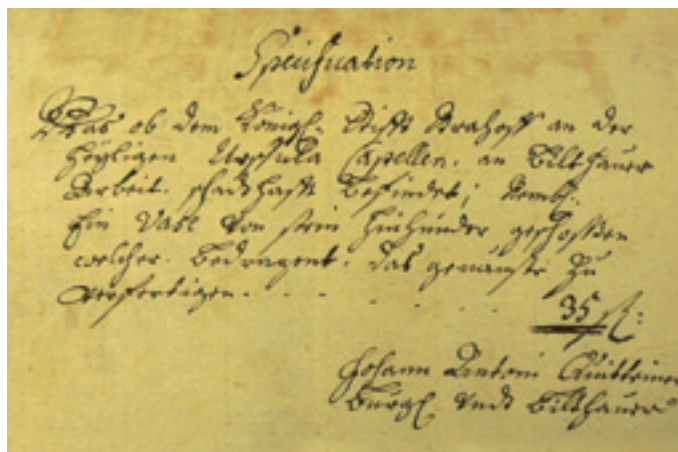 Specification
Was ob dem Königl. Stifft Strahoff an der
heÿligen Urschula Capellen. an Bilthauer
Arbeit. schadhafft befindet; Nembl:
Ein Vase von stein herunder geschossen
welcher. bedragent. das genauiste zu
verfertigen. . - . - . - . -
35 fl:
Johann Antoni Quitteiner
Burgl. undt Bilthauer